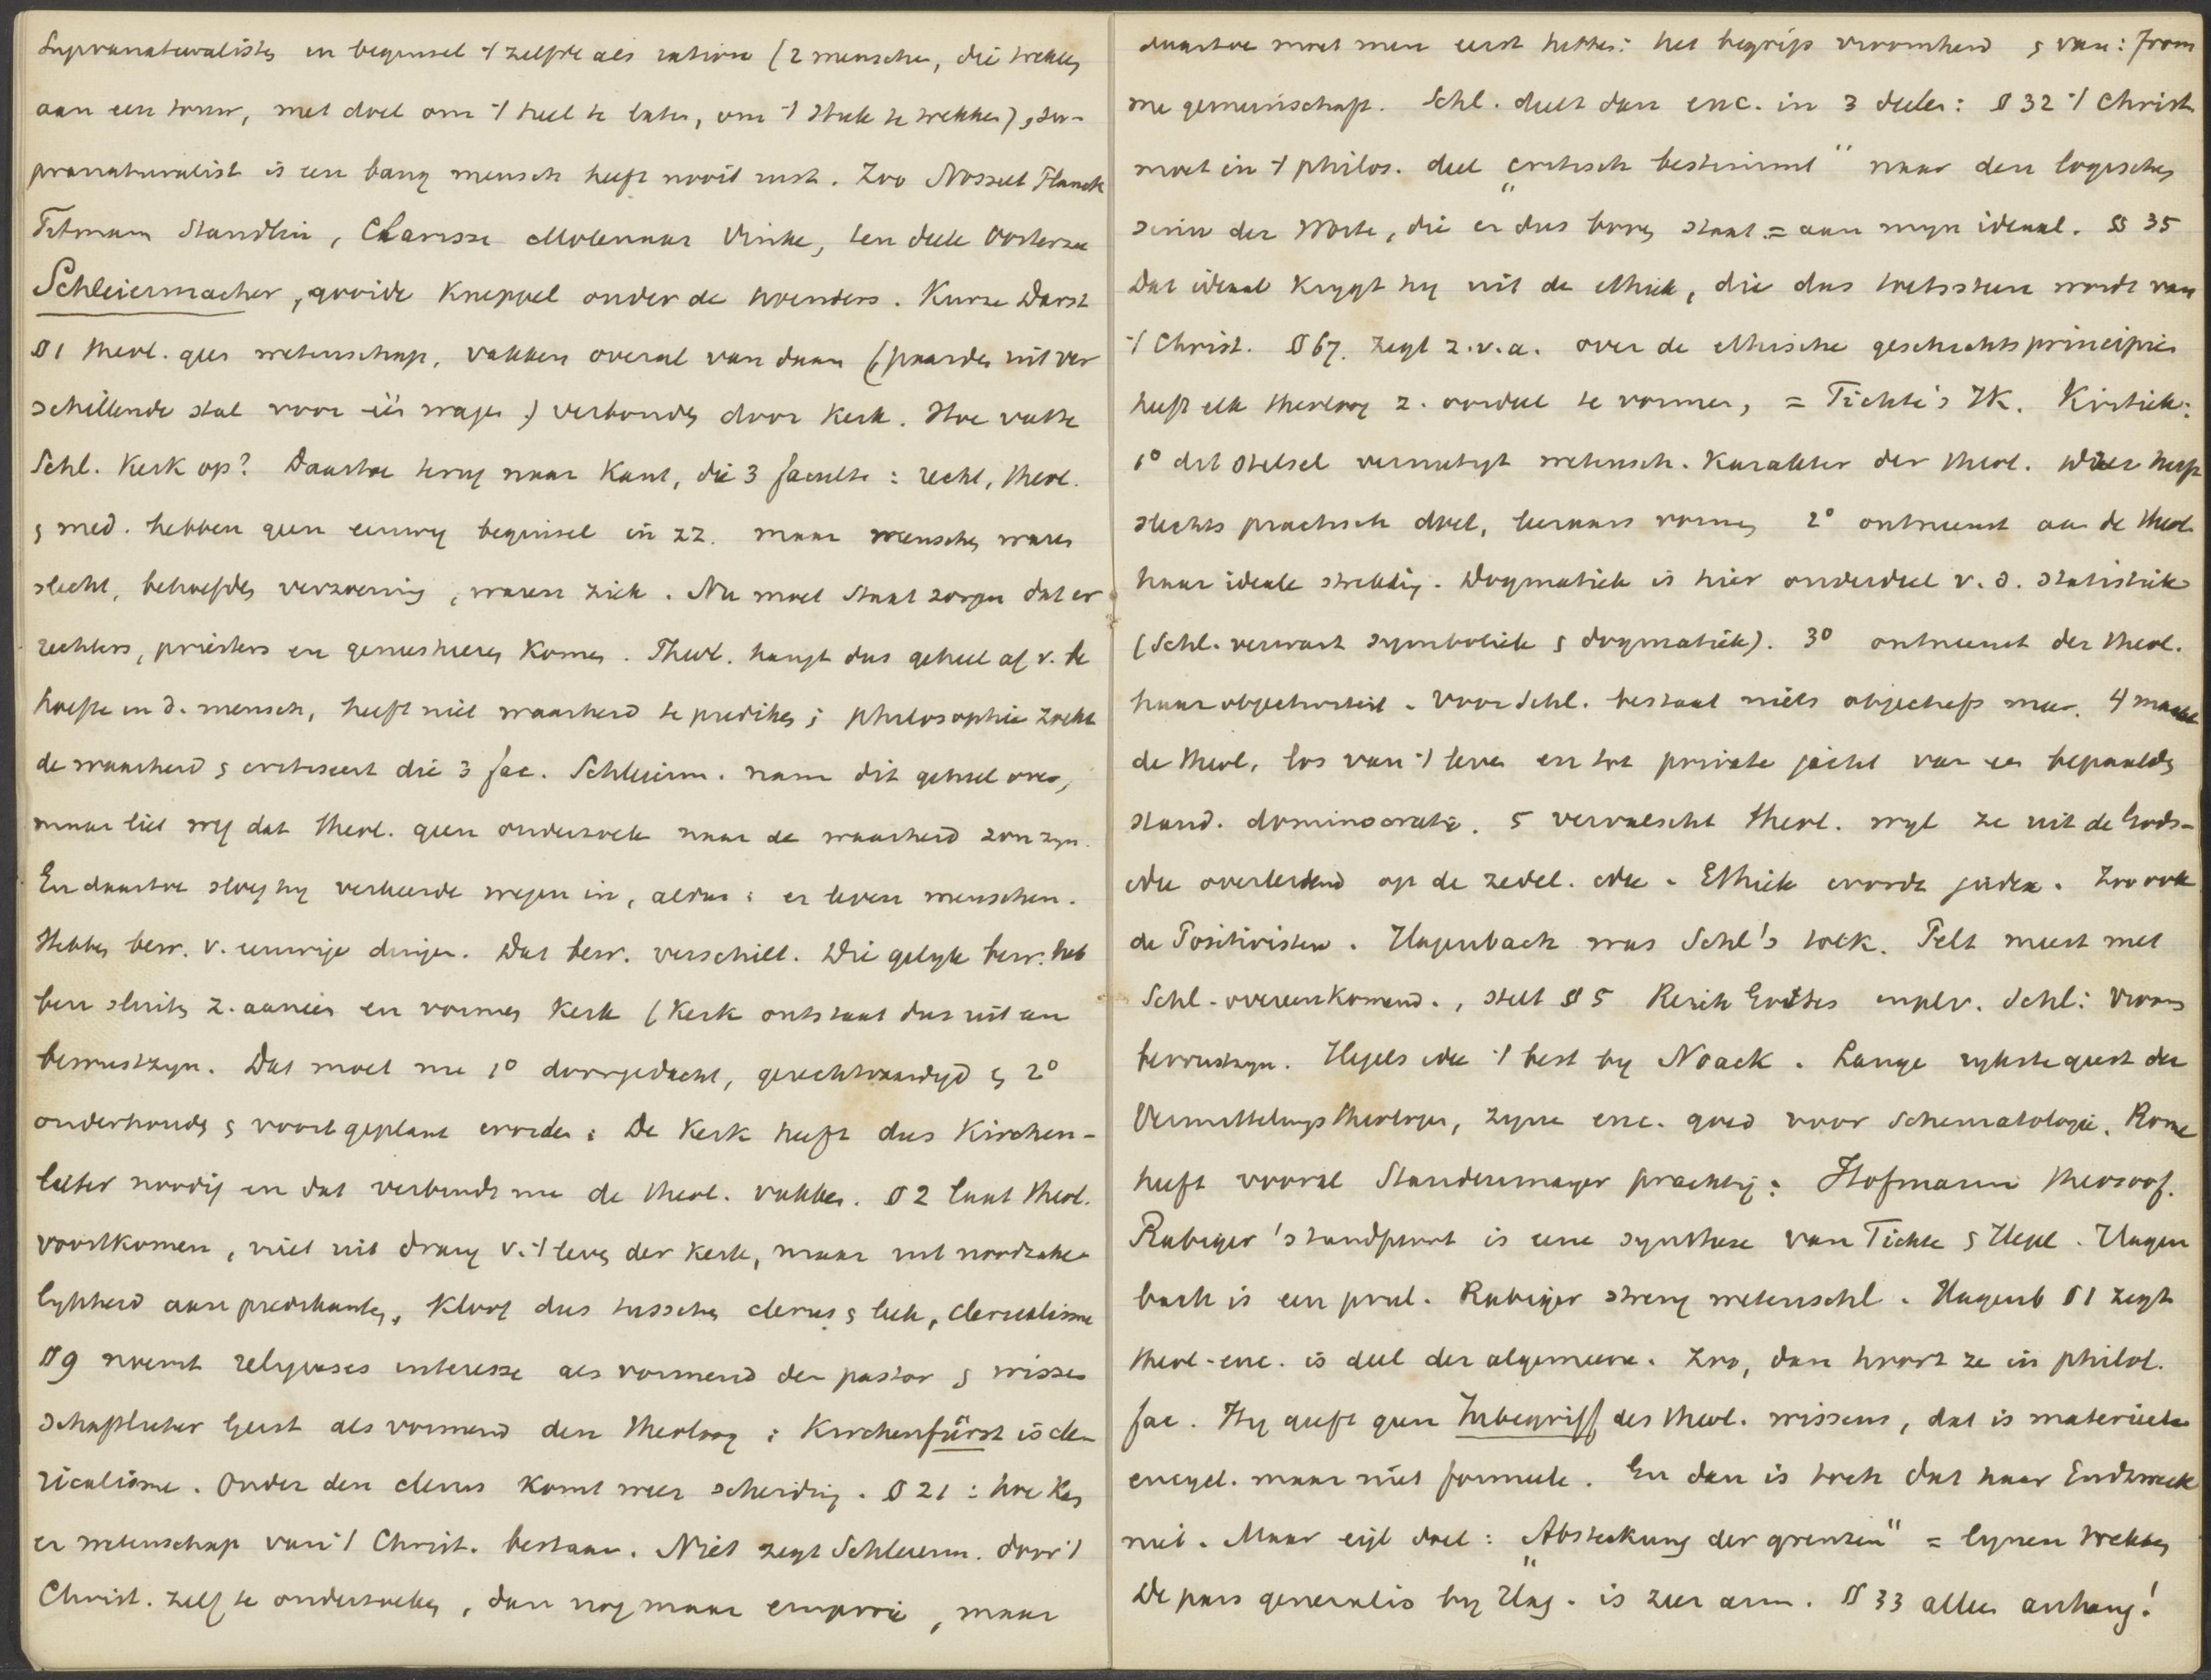 Supranaturalisten in beginsel 't zelfde als ration (2 menschen, die trekken
aan een touw, met doel om 't heel te laten, om 't stuk te trekken), su-
pranaturalist is een bang mensch heeft nooit rust. Zoo Nosselt Planck
Titmann Staudlin, Clarisse Molenaar Vinke, ten deele Oosterzee
Schleiermacher, gooide knuppel onder de hoenders. Kurze Darst
§ 1 theol. geen wetenschap, vakken overal van daan (paarden uit ver
schillende stal voor één wagen) verbonden door kerk. Hoe vatte
Schl. Kerk op? Daartoe terug naar Kant, die 3 faculte: recht, theol.
& med. hebben geen eeuwig beginsel in zz. maar menschen waren
slecht, behoefden verzoening, waren ziek. Nu moet Staat zorgen dat er
rechters, priesters en geneesheeren komen. Theol. hangt dus geheel af v. be
hoefte en d. mensch, heeft niet waarheid te prediken; philosophie zoekt
de waarheid & critiseert die 3 fac. Schleierm. nam dit geheel over,
maar liet weg dat theol. geen onderzoek naar de waarheid zou zyn.
En daartoe sloeg hy verkeerde wegen in, aldus: er leven menschen.
Hebben bew. v. eeuwige dingen. Dat bew. verschilt. Die gelyk bew. heb
ben sluiten z. aaneen en vormen kerk (Kerk ontstaat dus uit een
bewustzyn. Dat moet nu 1° doorgedacht, gerechtvaardigd & 2°
onderhouden & voortgeplant worden: De Kerk heeft dus Kirchen-
leiter noodig en dat verbindt nu de theol. vakken. § 2 laat theol.
voortkomen, niet uit drang v. 't leven der Kerk, maar uit noodzake
lykheid aan predikanten, Kloof dus tusschen clerus & leek, clericalisme
§ 9 noemt religieuses interesse als vormend den pastor & wissen
schaftlicher Geist als vormend den theoloog: Kirchenfürst is cle-
ricalisme. Onder den clerus komt weer scheiding. § 21: hoe kan
er wetenschap van 't Christ. bestaan. Niet zegt Schleierm. door 't
Christ. zelf te onderzoeken, dan nog maar empirie, maar
daartoe moet men eerst hebben: het begrip vroomheid & van: from
me gemeinschaft. Schl. deelt dan enc. in 3 deelen: § 32 't Christ.
moet in 't philos. deel „critisch bestimmt" naar den logischen
sinn der Worte, die er dus boven staat = aan myn ideaal. §§ 35
Dat ideaal krygt hy uit de ethiek, die dus toetssteen wordt van
't Christ. § 67. zegt z.v.a. over de ethische geschichtsprincipien
heeft elk theoloog z. oordeel te vormen, = Fichte's IK. Kritiek:
1° dit stelsel vernietigt wetensch. karakter der theol. heeft
slechts practisch doel, leeraars vormen 2° ontneemt aan de theol.
haar ideale strekking. Dogmatiek is hier onderdeel v. d. statistiek
(Schl. verwart symboliek & dogmatiek). 3° ontneemt der theol.
haar objectiviteit. Voor Schl. bestaat niets objectiefs meer. 4 maakt
de theol. los van 't leven en tot private jacht van een bepaalden
stand. dominocratie. 5 vervalscht theol. wyl ze uit de Gods-
idee overleidend op de zedel. idee. Ethiek wordt judex. Zoo ook
de Positivisten. Hagenbach was Schl's tolk. Pelt meest met
Schl. overeenkomend., stelt § 5 Reich Gottes in plv. Schl: vroom
bewustzyn. Hegels idee 't best by Noack. Lange rykste geest der
Vermittelungstheologen, zyne enc. goed voor Schematologie. Rome
heeft vooral Staudenmayer prachtig: Hofmann theosoof.
Rabiger 'standpunt is eene synthese van Fichte & Hegel. Hagen
bach is een prul. Rabiger streng wetenschl. Hagenb § 1 zegt
theol-enc. is deel der algemeene. Zoo, dan hoort ze in philol.
fac. Hy geeft geen Inbegriff des theol. wissens, dat is materieele
encycl. maar niet formeele. En dan is toch dat haar Endzweck
niet. Maar eigl doel: „Absteckung der grenzen" = lynen trekken
De pars generalis by Hag. is zeer arm. § 33 alleen anhang!